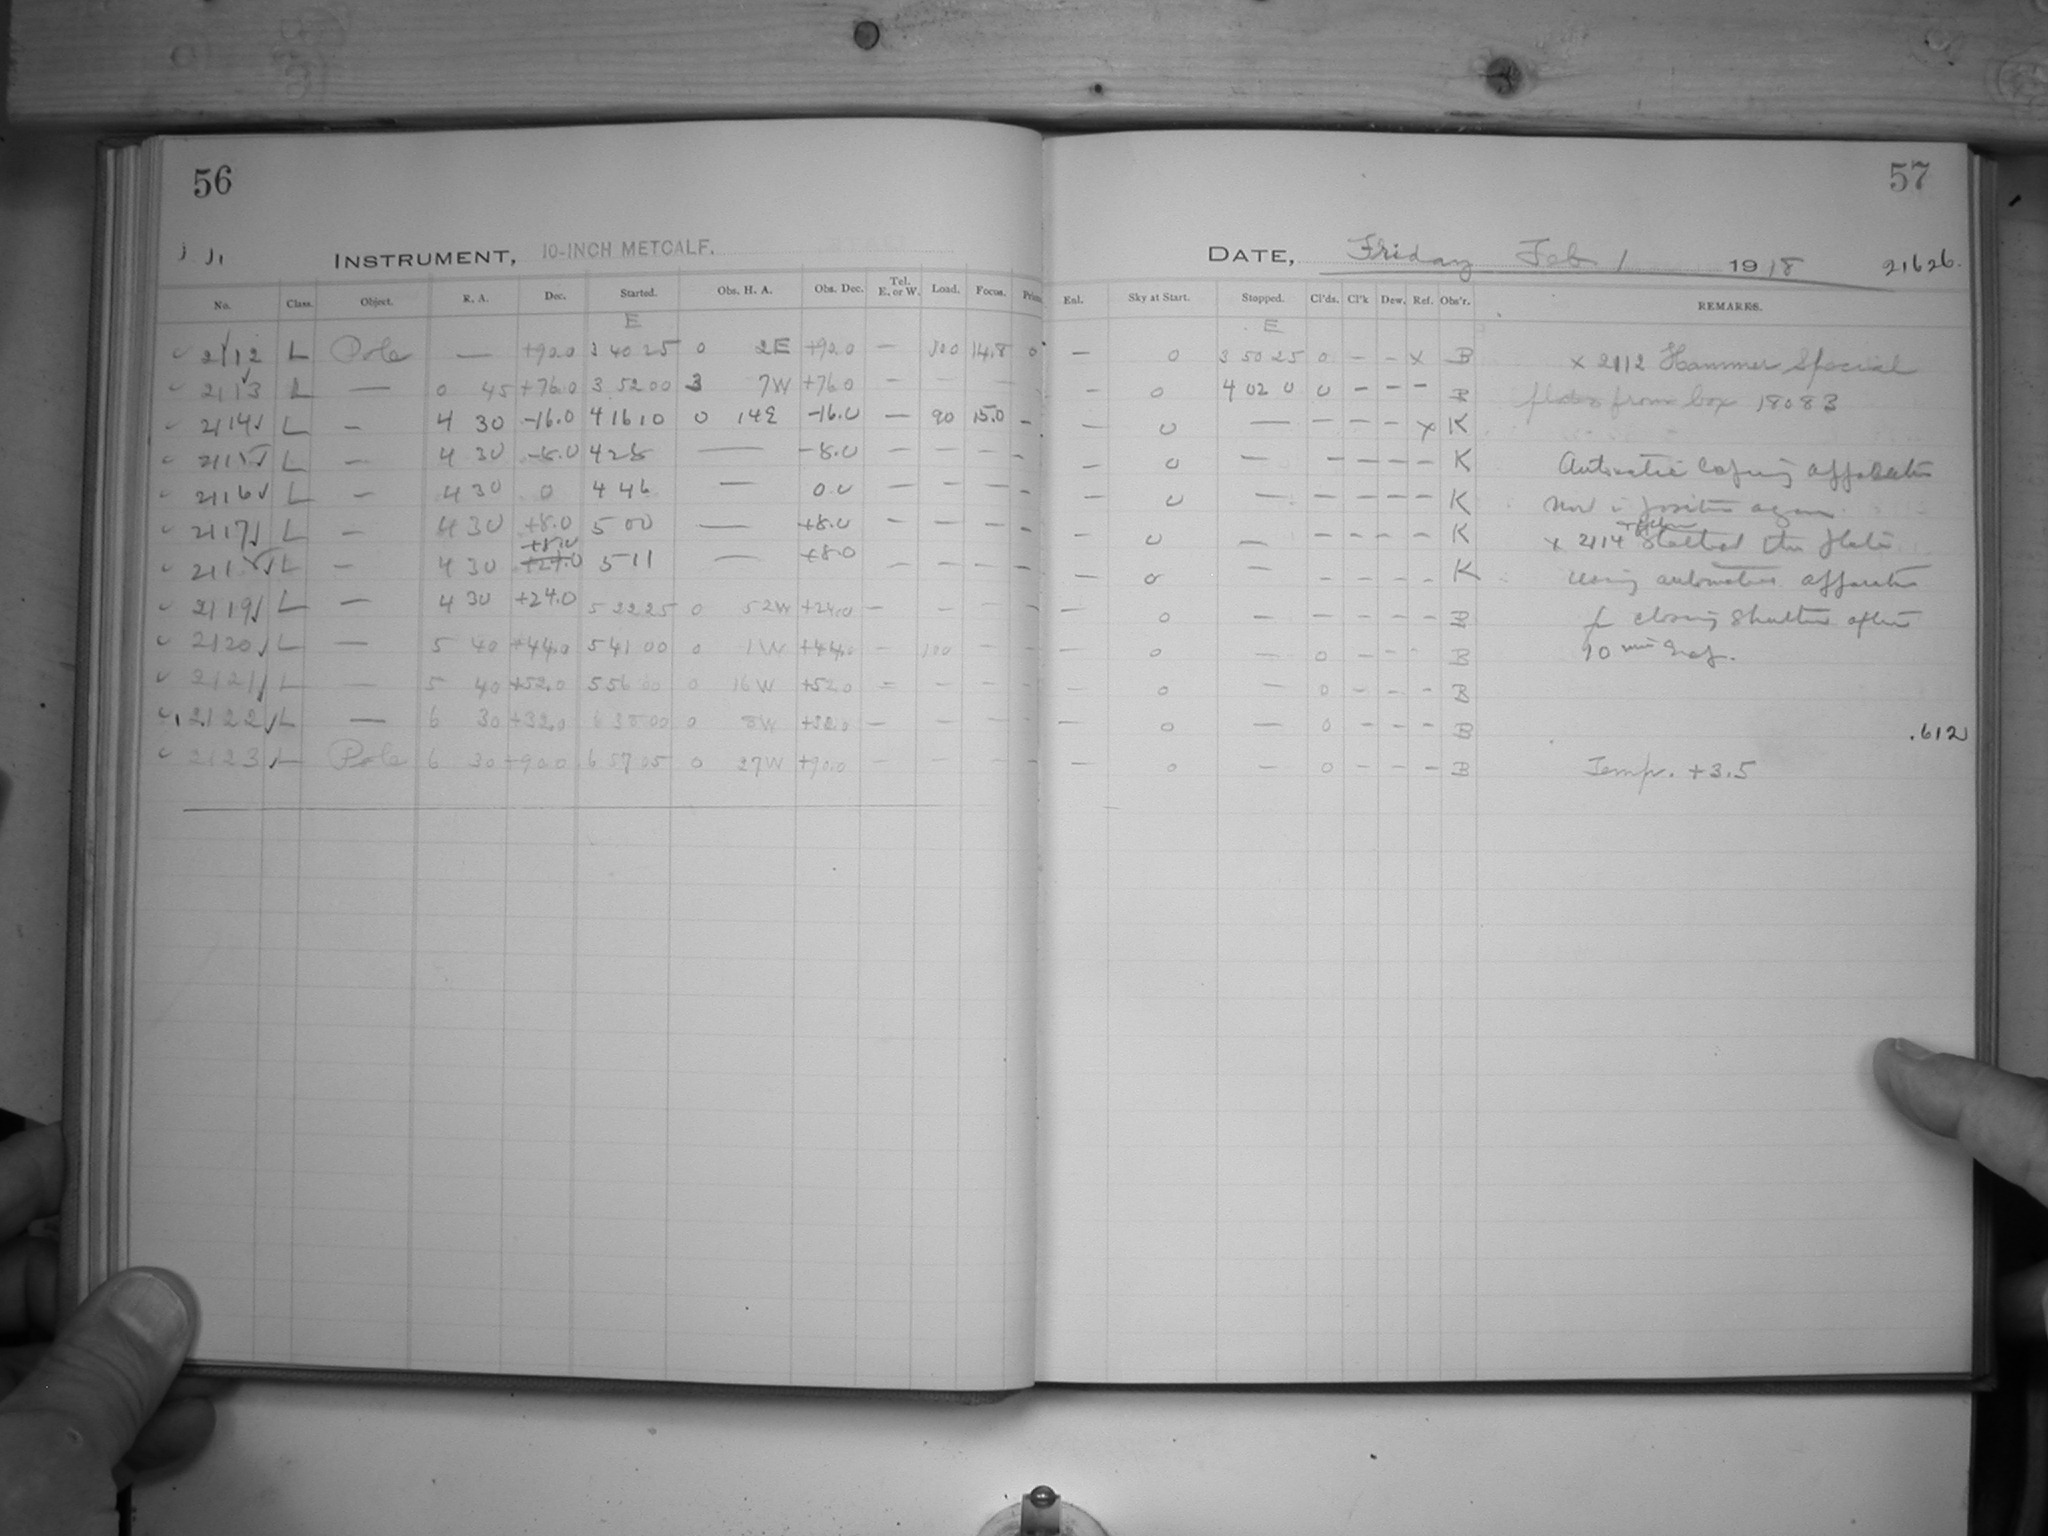 56
INSTRUMENT, 10-INCH METCALF.
No. Class. Object. R. A. Dec. Started. Obs. H. A. Obs. Dec. Tel. E. or W. Load. Focus.
E
2112 L Pole — +90.0 3 40 25 0 2E +90.0 — 100 14.8 0
2113 L — 0 45 +76.0 3 52 00 3 7W +76.0 — — —
2114 L — 4 30 -16.0 4 16 10 0 14E -16.0 — 90 15.0 —
2115 L — 4 30 -8.0 4 28 — -8.0 — — — —
2116 L — 4 30 0 4 46 — 0.0 — — — —
2117 L — 4 30 +8.0 5 00 — +8.0 — — — —
2118 L — 4 30 +8.0 +24.0 5 11 — +8.0 — — — —
2119 L — 4 30 +24.0 5 22 25 0 52W +24.0 — — — —
2120 L — 5 40 +44.0 5 41 00 0 1W +44.0 — 100 — —
2121 L — 5 40 +52.0 5 56 00 0 16W +52.0 — — — —
2122 L — 6 30 +32.0 6 38 00 0 8W +32.0 — — — —
2123 L Pole 6 30 +90.0 6 57 05 0 27W +90.0 — — — —
57
DATE, Friday Feb 1 1918 21626.
Enl. Sky at Start. Stopped. Cl'ds. Cl'k Dew. Ref. Obs'r. REMARKS.
E
— 0 3 50 25 0 — — x B x 2112 Hammer Special
— 0 4 02 0 0 — — — B plates from box 18083
— 0 — — — — x K
— 0 — — — — — K Automatic
— 0 — — — — — K now in position again
— 0 — — — — — K x 2114 the plate
— 0 — — — — — K using automatic apparatus
— 0 — — — — — B for closing shutter after
— 0 — 0 — — — B 10 min
— 0 — 0 — — — B
— 0 — 0 — — — B .612
— 0 — 0 — — — B Temp. +3.5